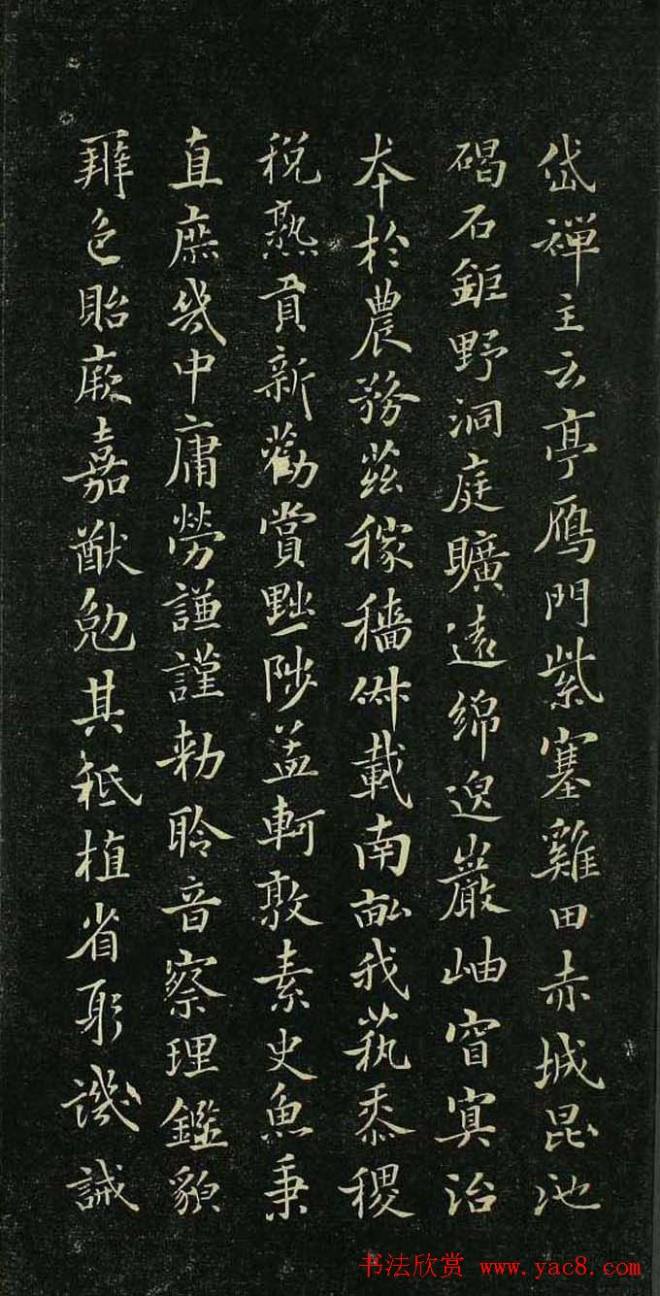 岱禪主云亭鴈門紫塞雞田赤城昆池
碣石鉅野洞庭曠遠綿邈巖岫窅冥治
本於農務茲稼穡俶載南畝我蓺黍稷
稅熟貢新勸賞黜陟孟軻敦素史魚秉
直庶幾中庸勞謙謹勑聆音察理鑑貌
辨色貽厥嘉猷勉其祗植省躬譏誡
书法欣赏 www.yac8.com